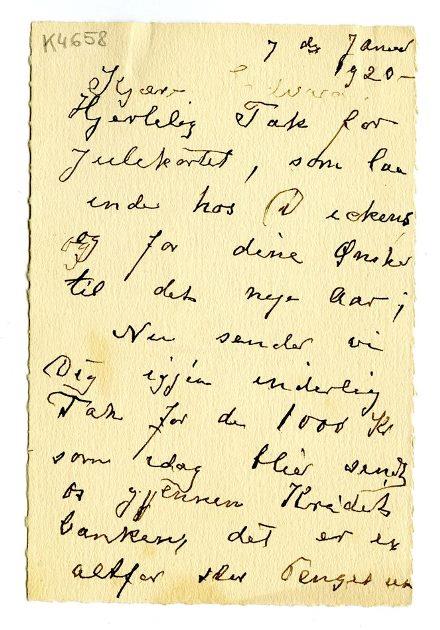 K4658
7 de Januar
1920 -
Kjære Edvard.
Hjertelig Tak for
Julekortet, som laa
inde hos Dickens
og for dine Ønsker
til det nye Aar;
Nu sender vi
Dig igjen inderlig
Tak for de 1000 Kr
som idag blev sendt
os gjennem Kredit
banken, det er en
altfor stor Penges